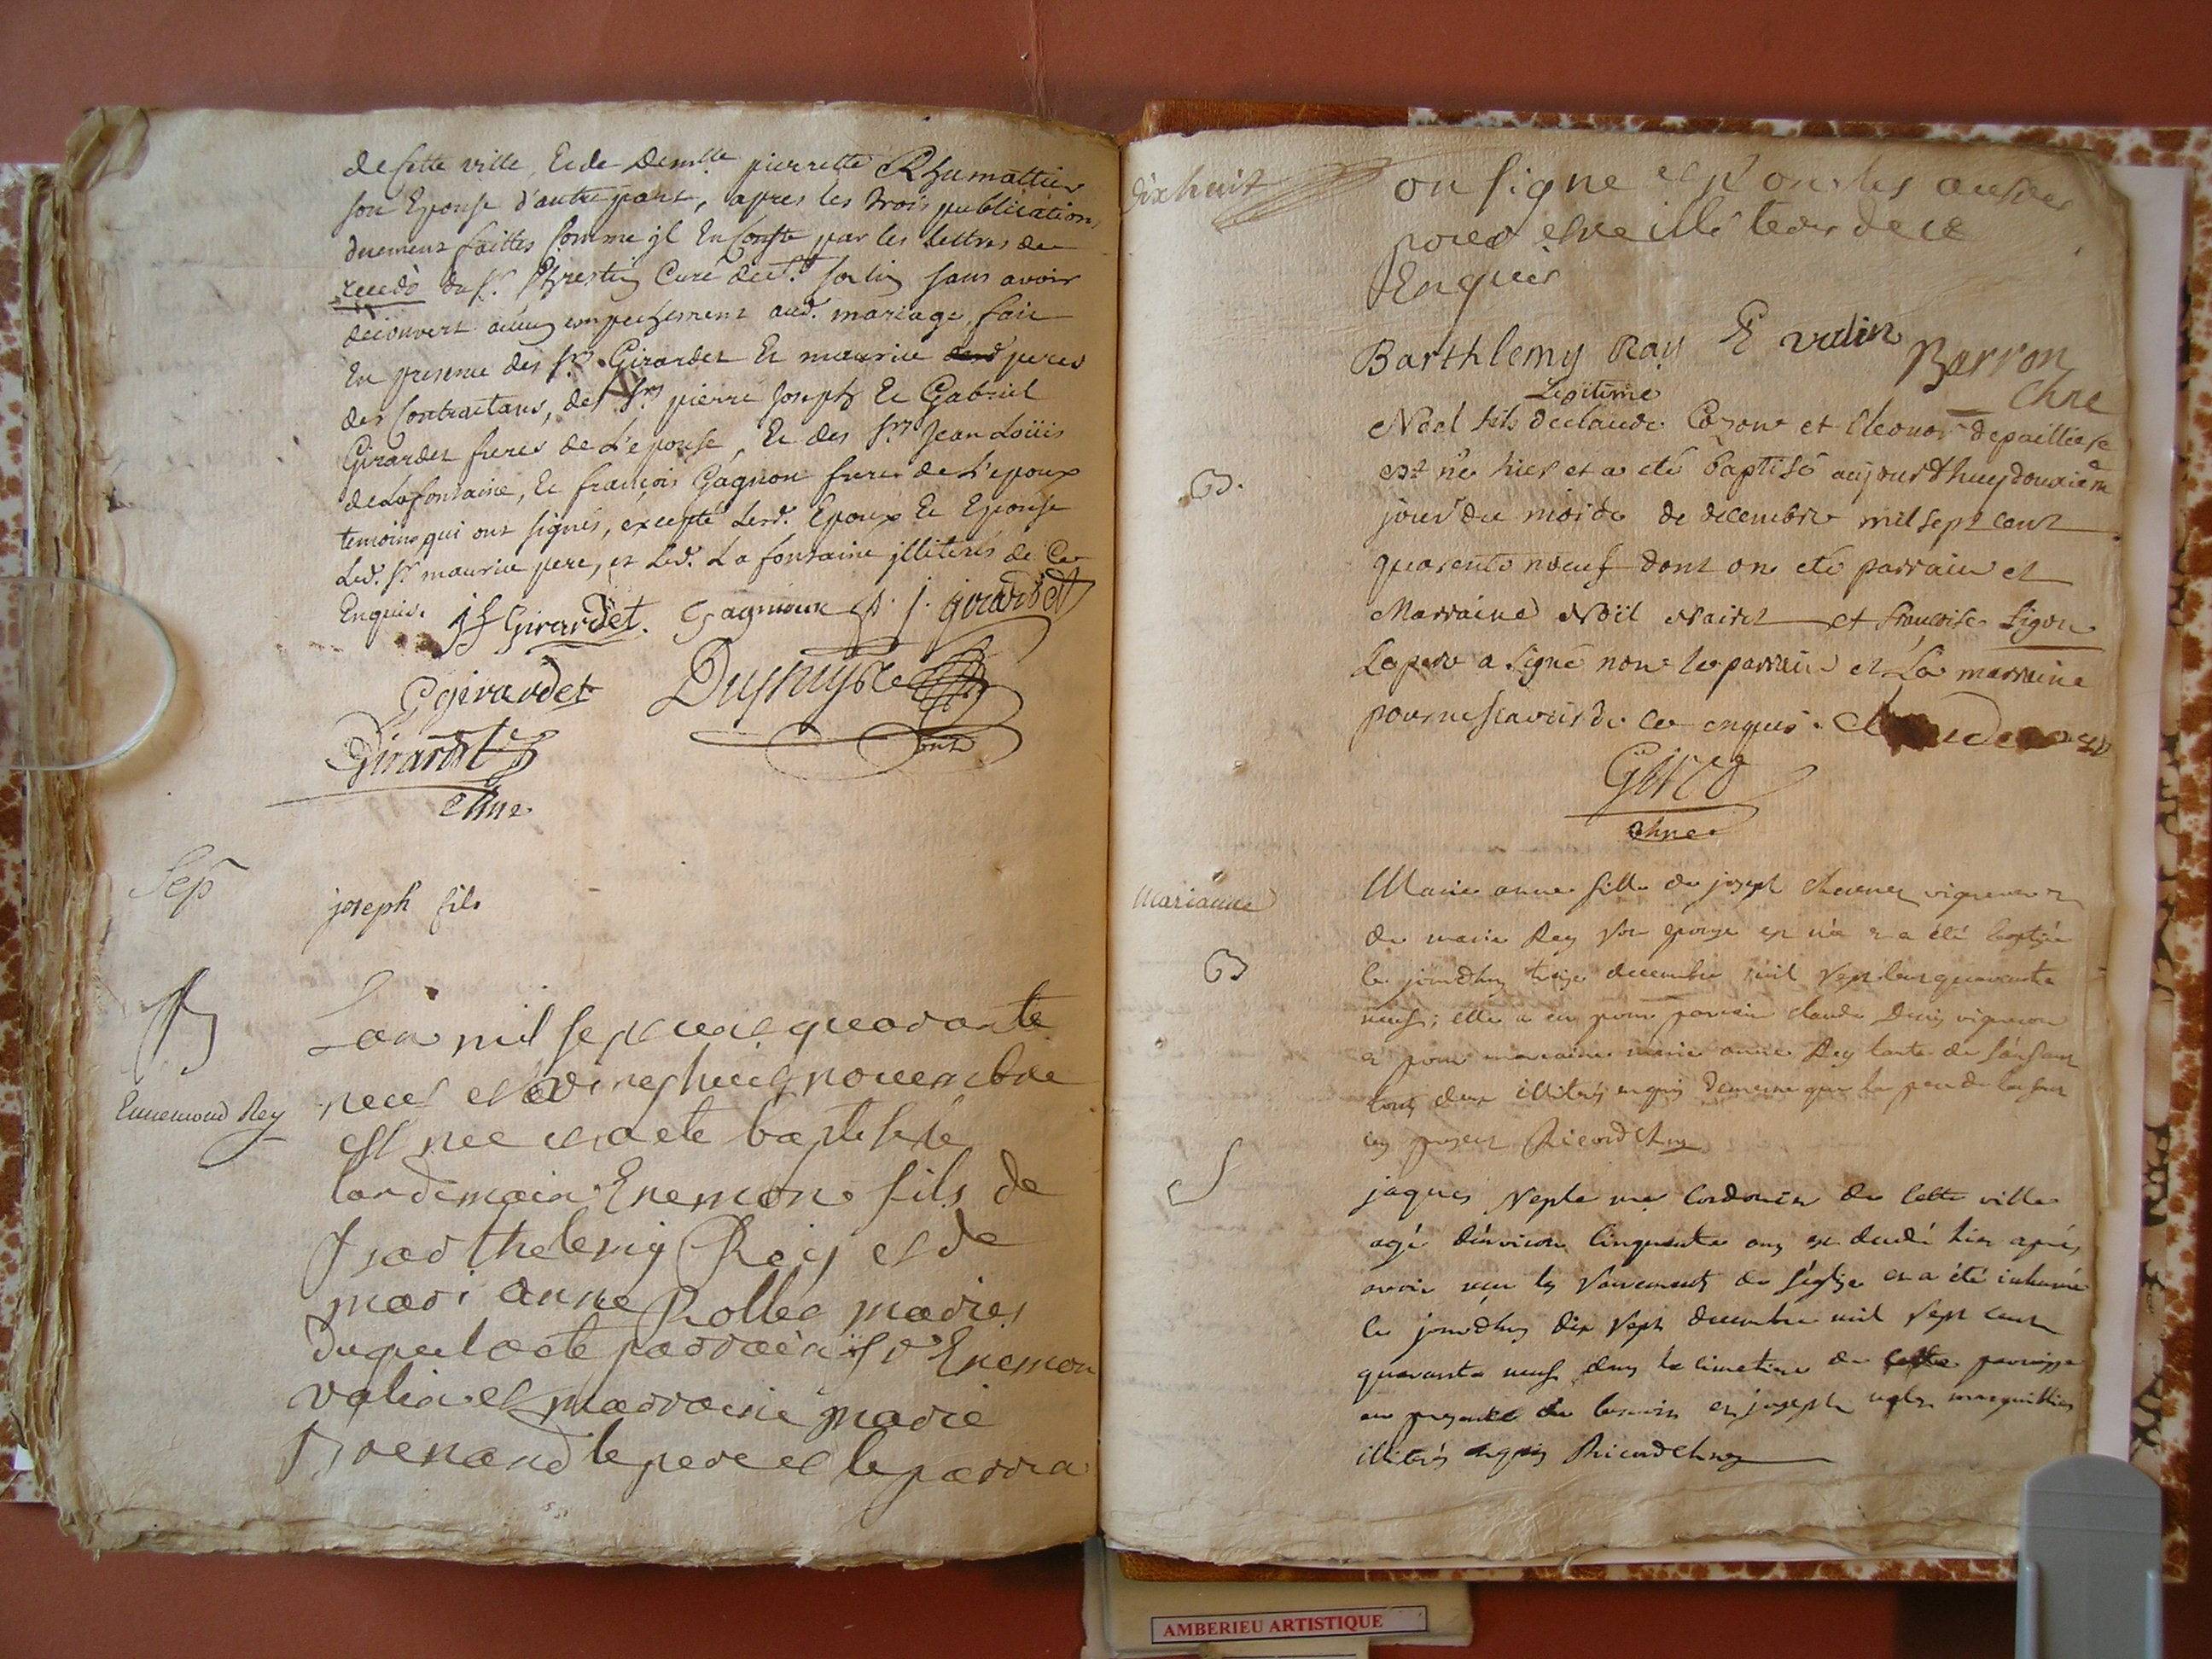 de Cette ville, Et de Demlle. pierrette Rhumattier
son Epouse d'autre part, apres les trois publications
duement faittes Comme jl En Conste par les lettres de
recedo du Sr. Curé de St. sans avoir
decouvert aucun empechement aud. mariage, fait
En presence des Srs. Girardet Et maurice peres
des Contractans, des Srs. pierre Joseph Et Gabriel
Girardet freres de L'epouse, Et des Srs. Jean Loüis
de Lafontaine, Et françois Gagnon frere de L'epoux
temoins qui ont signés, excepté Lesd. Epoux Et Epouse
Led. Sr. maurice pere, et Led. La fontaine jlliterés de Ce
Enquis. Girardet. Gagnioux p. j. girardet
G girardet
Girardet
chne.
Sep
joseph fils
B
L'an mil sept cent quarante
neuf et le vingt huit novembre
Ennemond Rey
est nee et a ete baptise le
landemain Enemon fils de
Barthelemy Rey et de
mari anne Rollet mariés
duquel a ete parrain sr Enemon
valin et marraine marie
Brenand le pere et le parra
dixhuit
on signe et non les autres
pour etre illiteres de ce
Enquis
Barthlemy Ray E valin
Barron
chne
Legitime
Noël fils de claude Cozon et Eleonor depailliere
B.
est né hier et a eté baptisé aujourd'huy douzieme
jour du mois de decembre mil sept cent
quarente noeuf dont on eté parrain et
Marraine Noël et francoise Ligon
Le pere a signé non le parrain et La marraine
pour ne scavoir de ce enquis.
chne
Marianne
Marie anne fille de joseph vigneron et
de marie Rey son epouse est née et a été baptisée
B
le jourdhuy treize decembre mil sept cens quarante
neuf; elle a eu pour parrain claude Denis vigneron
et pour marraine marie anne Rey tante de l'enfant
tous deux illitérés enquis de meme que le pere de l'enfant
icy present Ricard Chne
S
jaques me Cordonier de cette ville
agé d'environ cinquante ans est decedé hier après
avoir reçu les sacrements de l'église et a été inhumé
le jourdhuy dix sept decembre mil sept cent
quarante neuf dans le cimetiere de cette paroisse
en presence de et joseph marguilliers
illitérés enquis Ricard Chne
AMBERIEU ARTISTIQUE